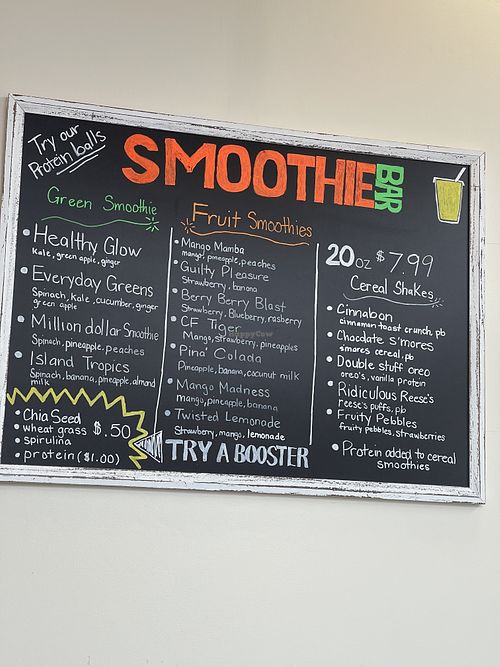 Try our
Protein balls
SMOOTHIE
BAR
Green Smoothie
• Healthy Glow
Kale, green apple, ginger
• Everyday Greens
Spinach, kale, cucumber, ginger
green apple
• Million dollar Smoothie
Spinach, pineapple, peaches
• Island Tropics
Spinach, banana, pineapple, almond
milk
• Chia Seed
• wheat grass $.50
• spirulina
• protein ($1.00)
Fruit Smoothies
• Mango Mamba
mango, pineapple, peaches
• Guilty Pleasure
Strawberry, banana
• Berry Berry Blast
Strawberry, Blueberry, rasberry
• CF Tiger
Mango, strawberry, pineapples
• Pina' Colada
Pineapple, banana, coconut milk
• Mango Madness
mango, pineapple, banana
• Twisted Lemonade
Strawberry, mango, lemonade
TRY A BOOSTER
20 oz $7.99
Cereal Shakes
• Cinnabon
cinnamon toast crunch, pb
• Chocolate S'mores
s'mores cereal, pb
• Double stuff oreo
oreo's, vanilla protein
• Ridiculous Reese's
reese's puffs, pb
• Fruity Pebbles
fruity pebbles, strawberries
• Protein added to cereal
smoothies
HappyCow